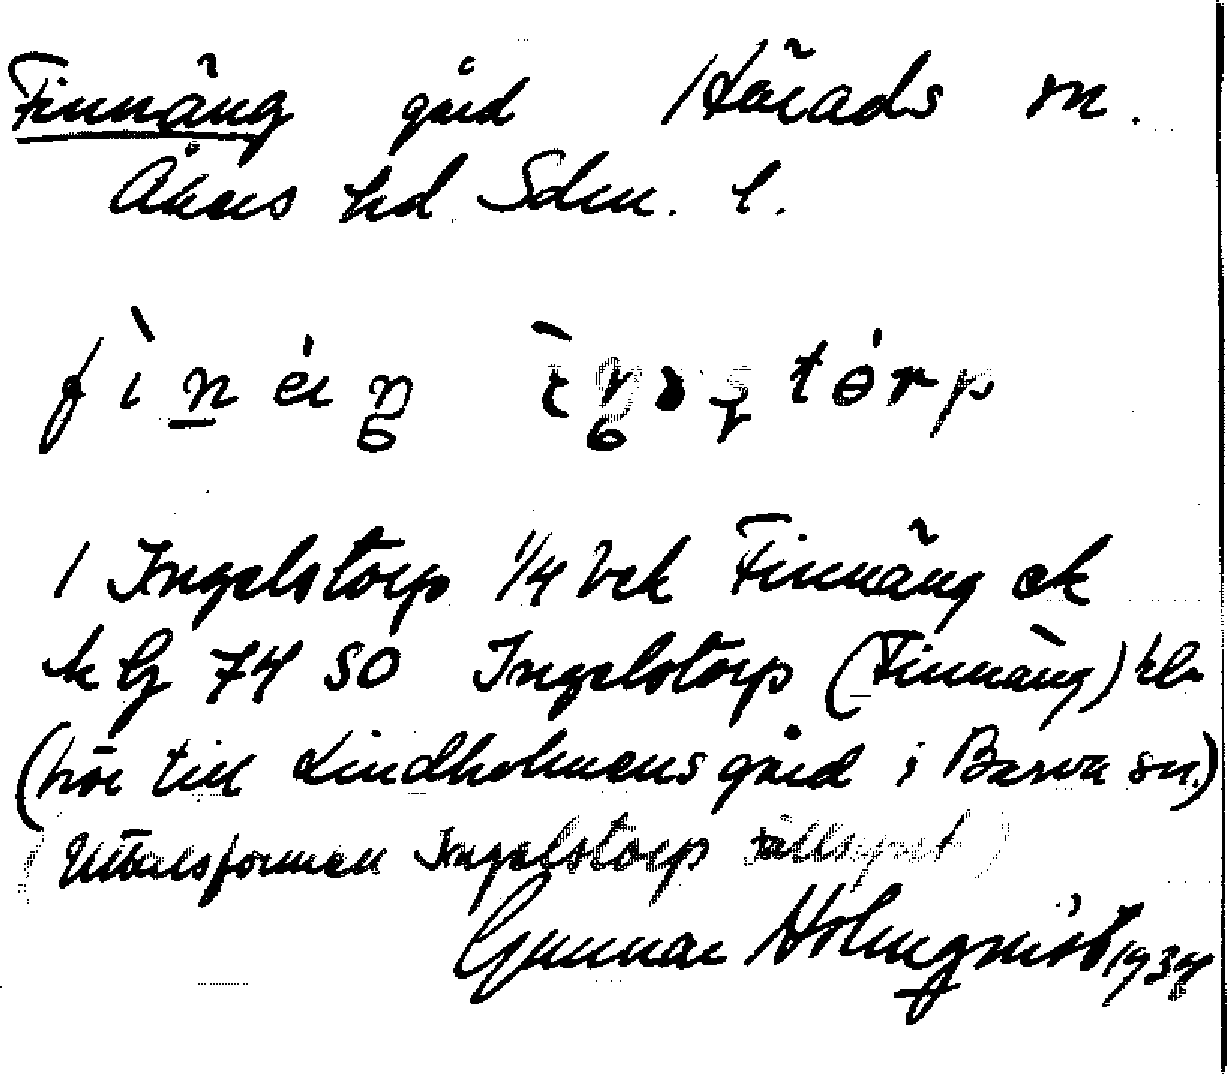 Finnäng gård Härads sn.
Åkers hd Sdm. l.
1 Ingelstorp 1/4 bek Finnäng ek
kG 74 SO Ingelstorp (Finnäng)
(hör till Lindholmens gård i Barva sn.)
(Uttalsformen Ingelstorp
Gunnar Holmqvist 1934